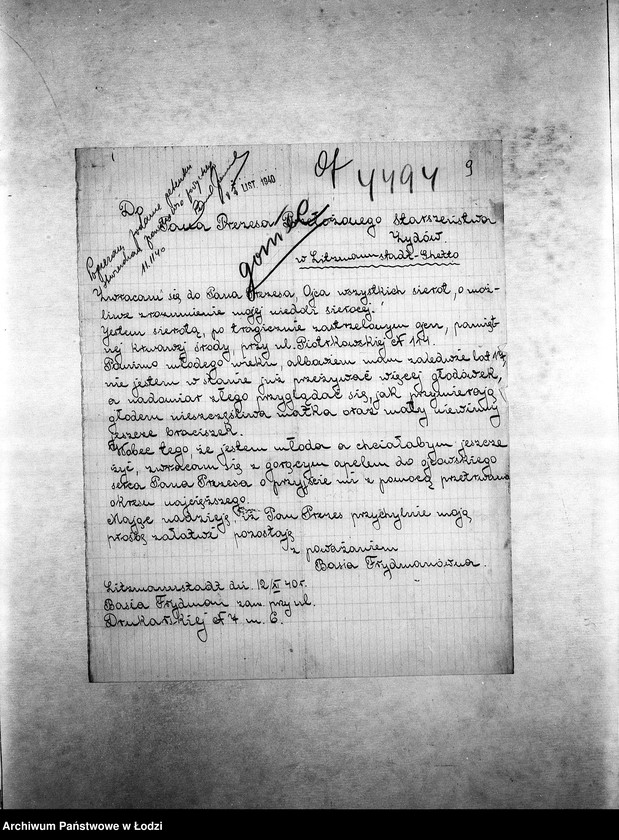 Of 4494 9
LIST. 1940
11.11.40
Do
Pana Prezesa Przełożonego Starszeństwa
Żydów.
w Litzmannstadt-Ghetto
Zwracam się do Pana Prezesa, Ojca wszystkich sierot, o moż-
liwe zrozumienie mojej niedoli sierocej.
Jestem sierotą, po tragicznie zastrzelonym ojcu, pamięt-
nej krwawej środy, przy ul. Piotrkowskiej №
Pomimo młodego wieku, albowiem mam zaledwie lat 17,
nie jestem w stanie już przeżywać więcej głodówek,
a nadomiar złego przyglądać się, jak przymierają
głodem nieszczęśliwa matka oraz mały niewinny
jeszcze braciszek.
Wobec tego, że jestem młoda a chciałabym jeszcze
żyć, zwracam się z gorącym apelem do ojcowskiego
serca Pana Prezesa o przyjście mi z pomocą przetrwania
okresu najcięższego.
Mając nadzieję, iż Pan Prezes przychylnie moją
prośbę załatwi pozostaję
z poważaniem
Basia Frydmanówna.
Litzmannstadt dn. 12/XI 40 r.
Basia Frydman zam. przy ul.
Drukarskiej № 7 m. 6.
Archiwum Państwowe w Łodzi